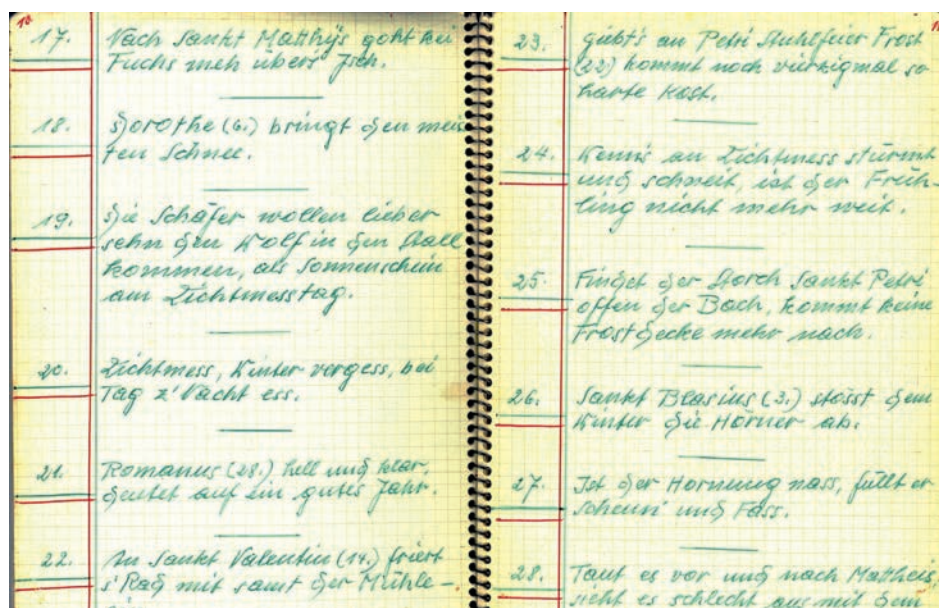 10.
17. Nach Sankt Matthÿs goht kei
Fuchs meh übers Isch.
18. Dorothe (6.) bringt den meis
ten Schnee.
19. Die Schäfer wollen lieber
sehn den Wolf in den Stall
kommen, als Sonnenschein
am Lichtmesstag.
20. Lichtmess, Winter vergess, bei
Tag z'Nacht ess.
21. Romanus (28.) hell und klar,
deutet auf ein gutes Jahr.
22. An Sankt Valentin (14.) friert
s'Rad mit samt der Mühle-
23. giebt's an Petri Stuhlfeier Frost
(22) kommt noch vürzigmal so
harte Kost.
24. Wenn's an Lichtmess stürmt
und schneit, ist der Früh-
ling nicht mehr weit.
25. Findet der Storch Sankt Petri
offen der Bach, kommt keine
Frostdecke mehr nach.
26. Sankt Blasius (3.) stösst dem
Winter die Hörner ab.
27. Ist der Hornung nass, füllt er
Scheun' und Fass.
28. Taut es vor und nach Mattheis,
sieht es schlecht aus mit dem